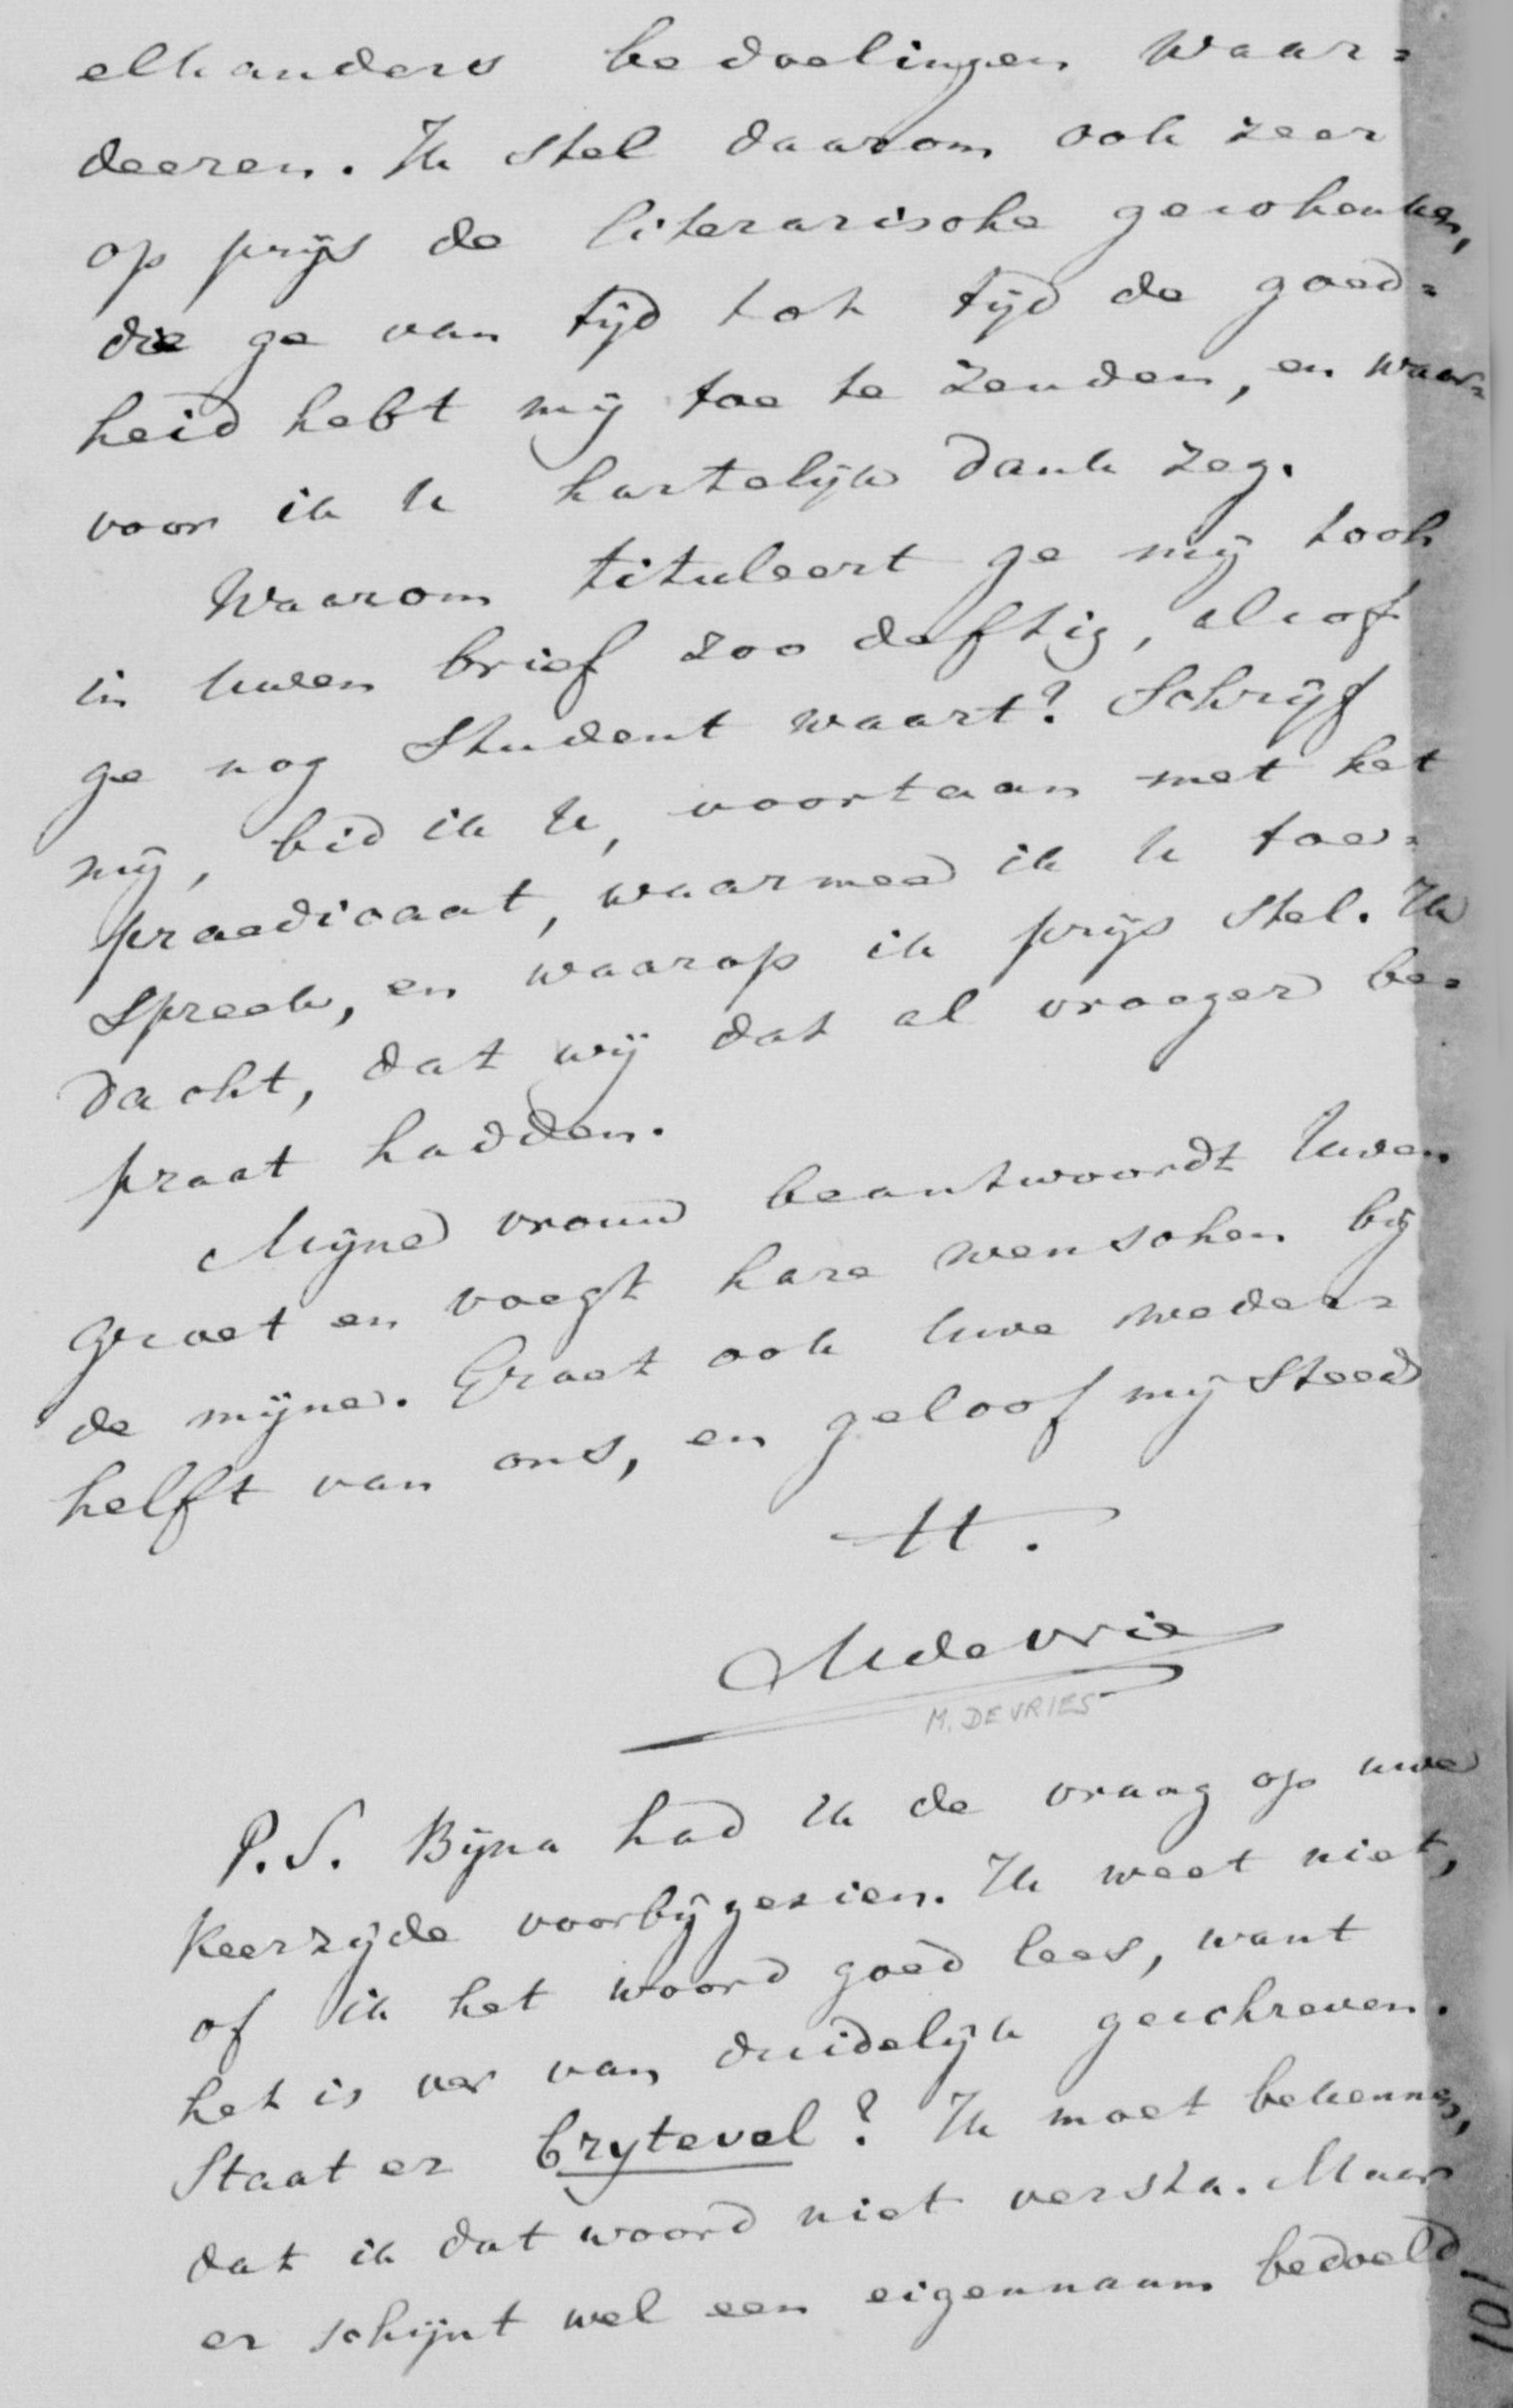 elkanders bedoelingen waar=
deeren. Ik stel daarom ook zeer
op prijs de literarische geschenken,
die ge van tijd tot tijd de goed=
heid hebt mij toe te zenden, en waar=
voor ik U hartelijk dank zeg.
Waarom tituleert ge mij toch
in Uwen brief zoo deftig, alsof
ge nog Student waart? Schrijf
mij, bid ik U, voortaan met het
praedicaat, waarmee ik U toe=
spreek, en waarop ik prijs stel. Ik
dacht, dat wij dat al vroeger be=
praat hadden.
Mijne vrouw beantwoordt Uwen
groet en voegt hare wenschen bij
de mijne. Groet ook Uwe weder=
helft van ons, en geloof mij steeds
tt.
MdeVries
M. DE VRIES
P.S. Bijna had ik de vraag op uwe
keerzijde voorbijgezien. Ik weet niet,
of ik het woord goed lees, want
het is ver van duidelijk geschreven.
Staat er brytevel? Ik moet bekennen,
dat ik dat woord niet versta. Maar
er schijnt wel een eigennaam bedoeld
101